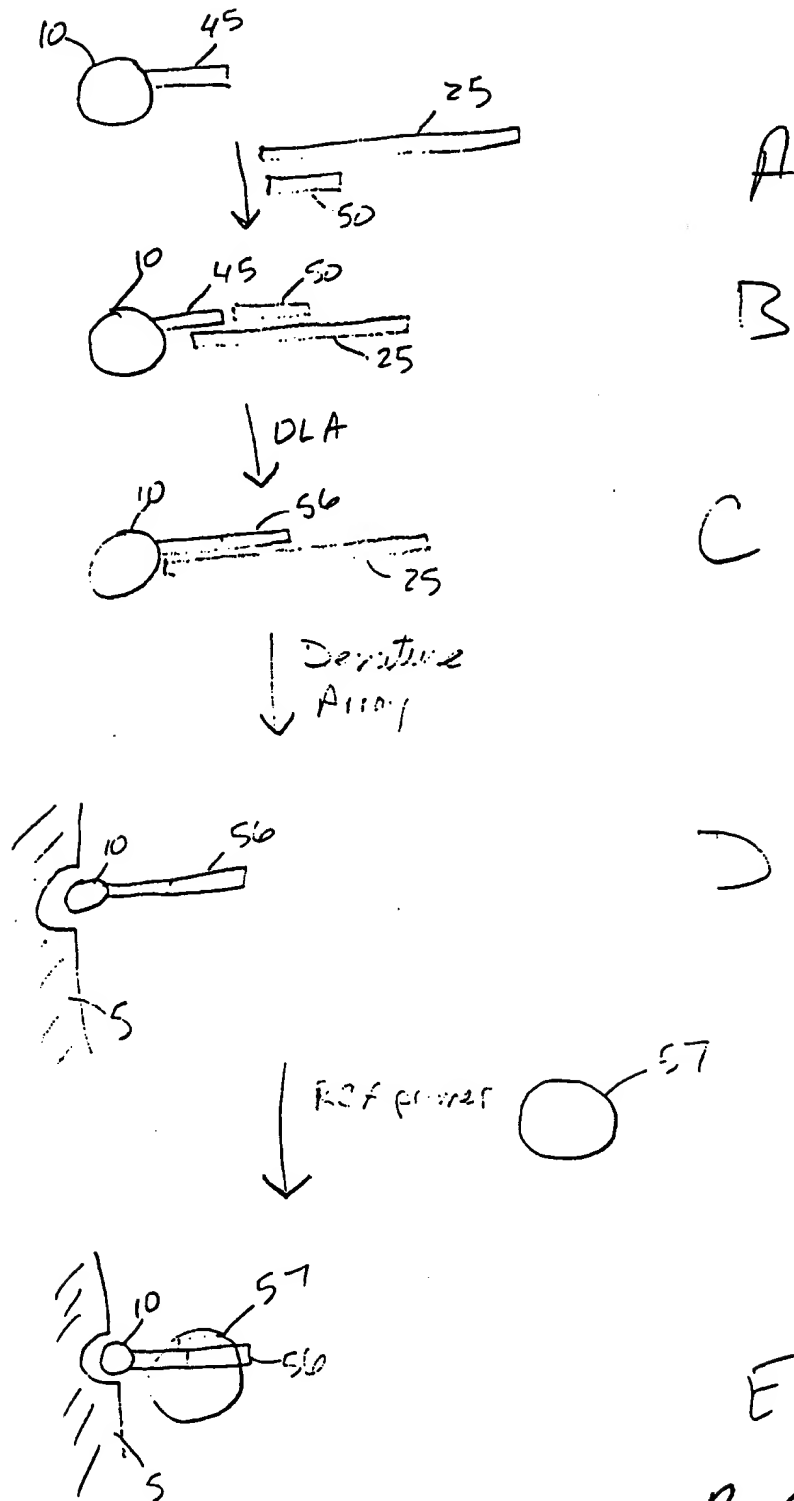 10 45
25
A
50
10 45 50
B
25
OLA
10 56
C
25
Denature
Array
10 56
D
5
RCA primer 57
57
10
56
E
5